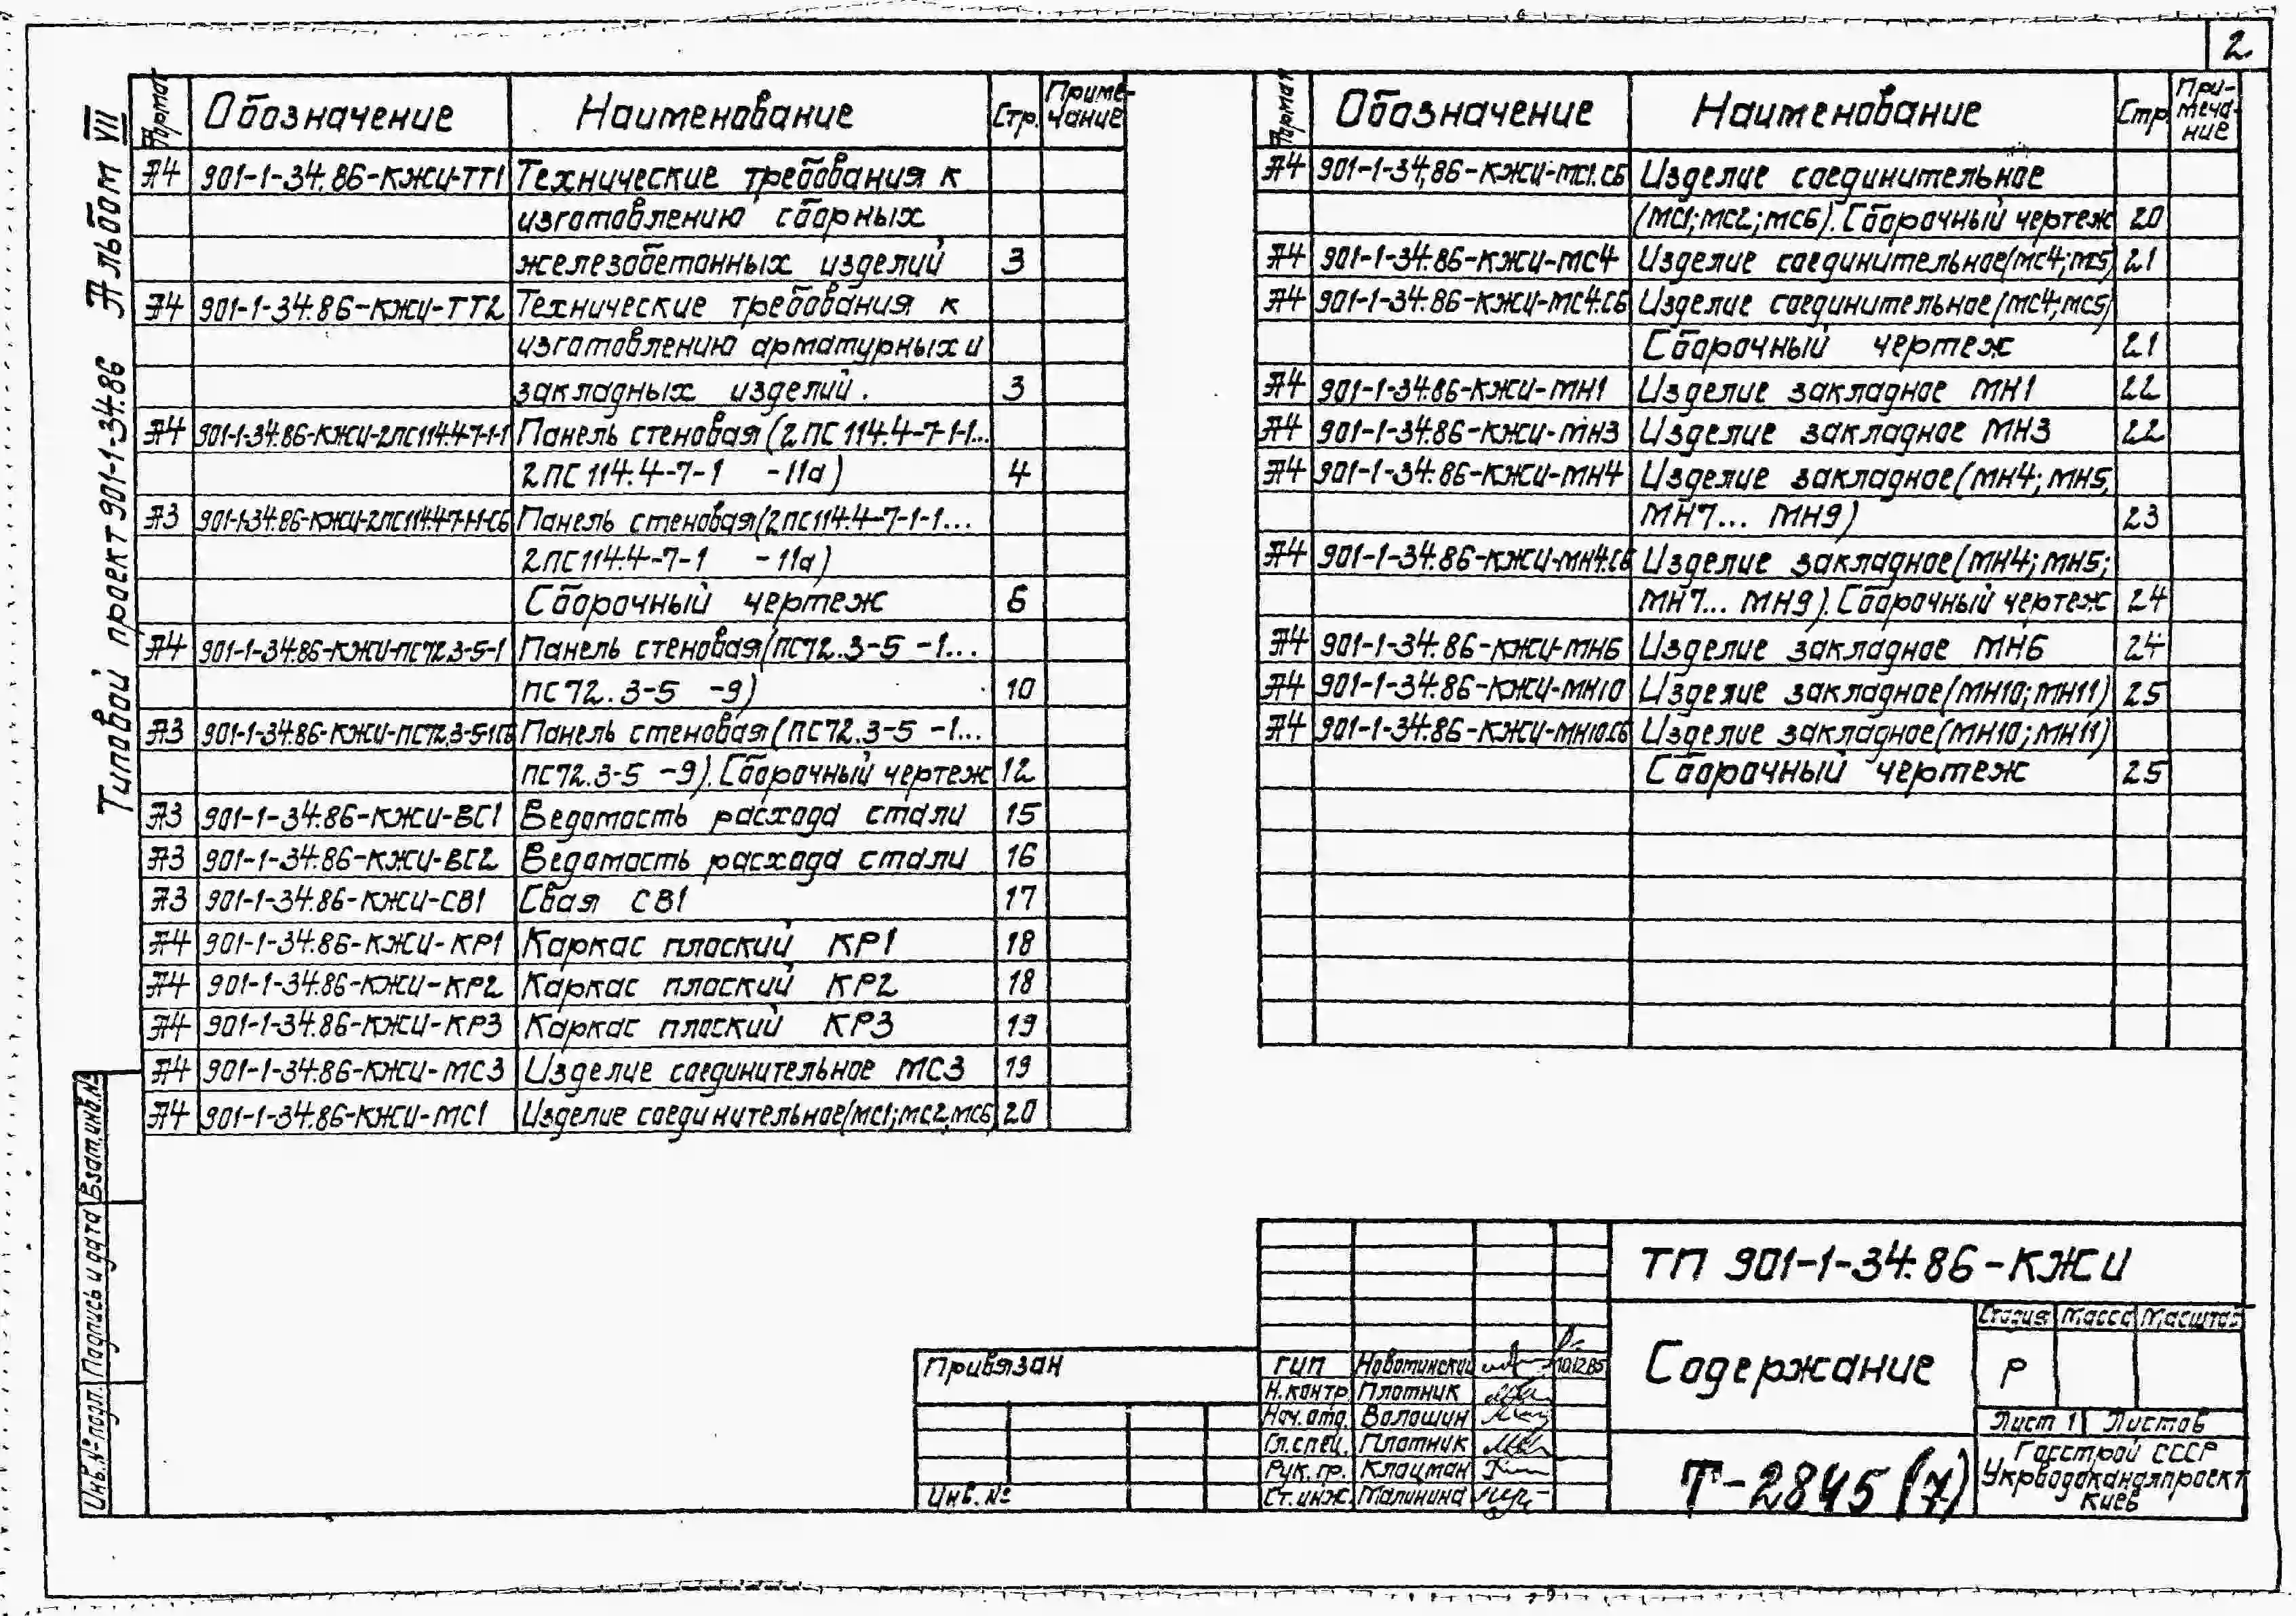 2
Типовой проект 901-1-34.86 Альбом VII
Формат Обозначение Наименование Стр. Приме-
чание
А4 901-1-34.86-КЖИ-ТТ1 Технические требования к
изготовлению сборных
железобетонных изделий 3
А4 901-1-34.86-КЖИ-ТТ2 Технические требования к
изготовлению арматурных и
закладных изделий. 3
А4 901-1-34.86-КЖИ-2ПС114.4-7-1-1 Панель стеновая (2ПС 114.4-7-1-1...
2ПС 114.4-7-1 -11а) 4
А3 901-1-34.86-КЖИ-2ПС114.4-7-1-1-СБ Панель стеновая (2ПС114.4-7-1-1...
2ПС114.4-7-1 -11а)
Сборочный чертеж 6
А4 901-1-34.86-КЖИ-ПС72.3-5-1 Панель стеновая (ПС72.3-5 -1...
ПС72.3-5 -9) 10
А3 901-1-34.86-КЖИ-ПС72.3-5-1СБ Панель стеновая (ПС72.3-5 -1...
ПС72.3-5 -9). Сборочный чертеж 12
А3 901-1-34.86-КЖИ-ВС1 Ведомость расхода стали 15
А3 901-1-34.86-КЖИ-ВС2 Ведомость расхода стали 16
А3 901-1-34.86-КЖИ-СВ1 Свая СВ1 17
А4 901-1-34.86-КЖИ-КР1 Каркас плоский КР1 18
А4 901-1-34.86-КЖИ-КР2 Каркас плоский КР2 18
А4 901-1-34.86-КЖИ-КР3 Каркас плоский КР3 19
А4 901-1-34.86-КЖИ-МС3 Изделие соединительное МС3 19
А4 901-1-34.86-КЖИ-МС1 Изделие соединительное (МС1; МС2, МС6) 20
Формат Обозначение Наименование Стр. При-
меча-
ние
А4 901-1-34.86-КЖИ-МС1.СБ Изделие соединительное
(МС1; МС2; МС6). Сборочный чертеж 20
А4 901-1-34.86-КЖИ-МС4 Изделие соединительное (МС4; МС5) 21
А4 901-1-34.86-КЖИ-МС4.СБ Изделие соединительное (МС4; МС5)
Сборочный чертеж 21
А4 901-1-34.86-КЖИ-МН1 Изделие закладное МН1 22
А4 901-1-34.86-КЖИ-МН3 Изделие закладное МН3 22
А4 901-1-34.86-КЖИ-МН4 Изделие закладное (МН4; МН5;
МН7... МН9) 23
А4 901-1-34.86-КЖИ-МН4.СБ Изделие закладное (МН4; МН5;
МН7... МН9). Сборочный чертеж 24
А4 901-1-34.86-КЖИ-МН6 Изделие закладное МН6 24
А4 901-1-34.86-КЖИ-МН10 Изделие закладное (МН10; МН11) 25
А4 901-1-34.86-КЖИ-МН10.СБ Изделие закладное (МН10; МН11)
Сборочный чертеж 25
Инв.№подл. Подпись и дата Взам.инв.№
Привязан
Инв. №
ТП 901-1-34.86-КЖИ
Содержание
Стадия Масса Масштаб
Р
Лист 1 Листов
Госстрой СССР
Укрводоканалпроект
Киев
Т-2845 (7)
ГИП Новотинский 10.12.85
Н.контр. Плотник
Нач.отд. Волошин
Гл.спец. Плотник
Рук.гр. Клацман
Ст.инж. Малинина